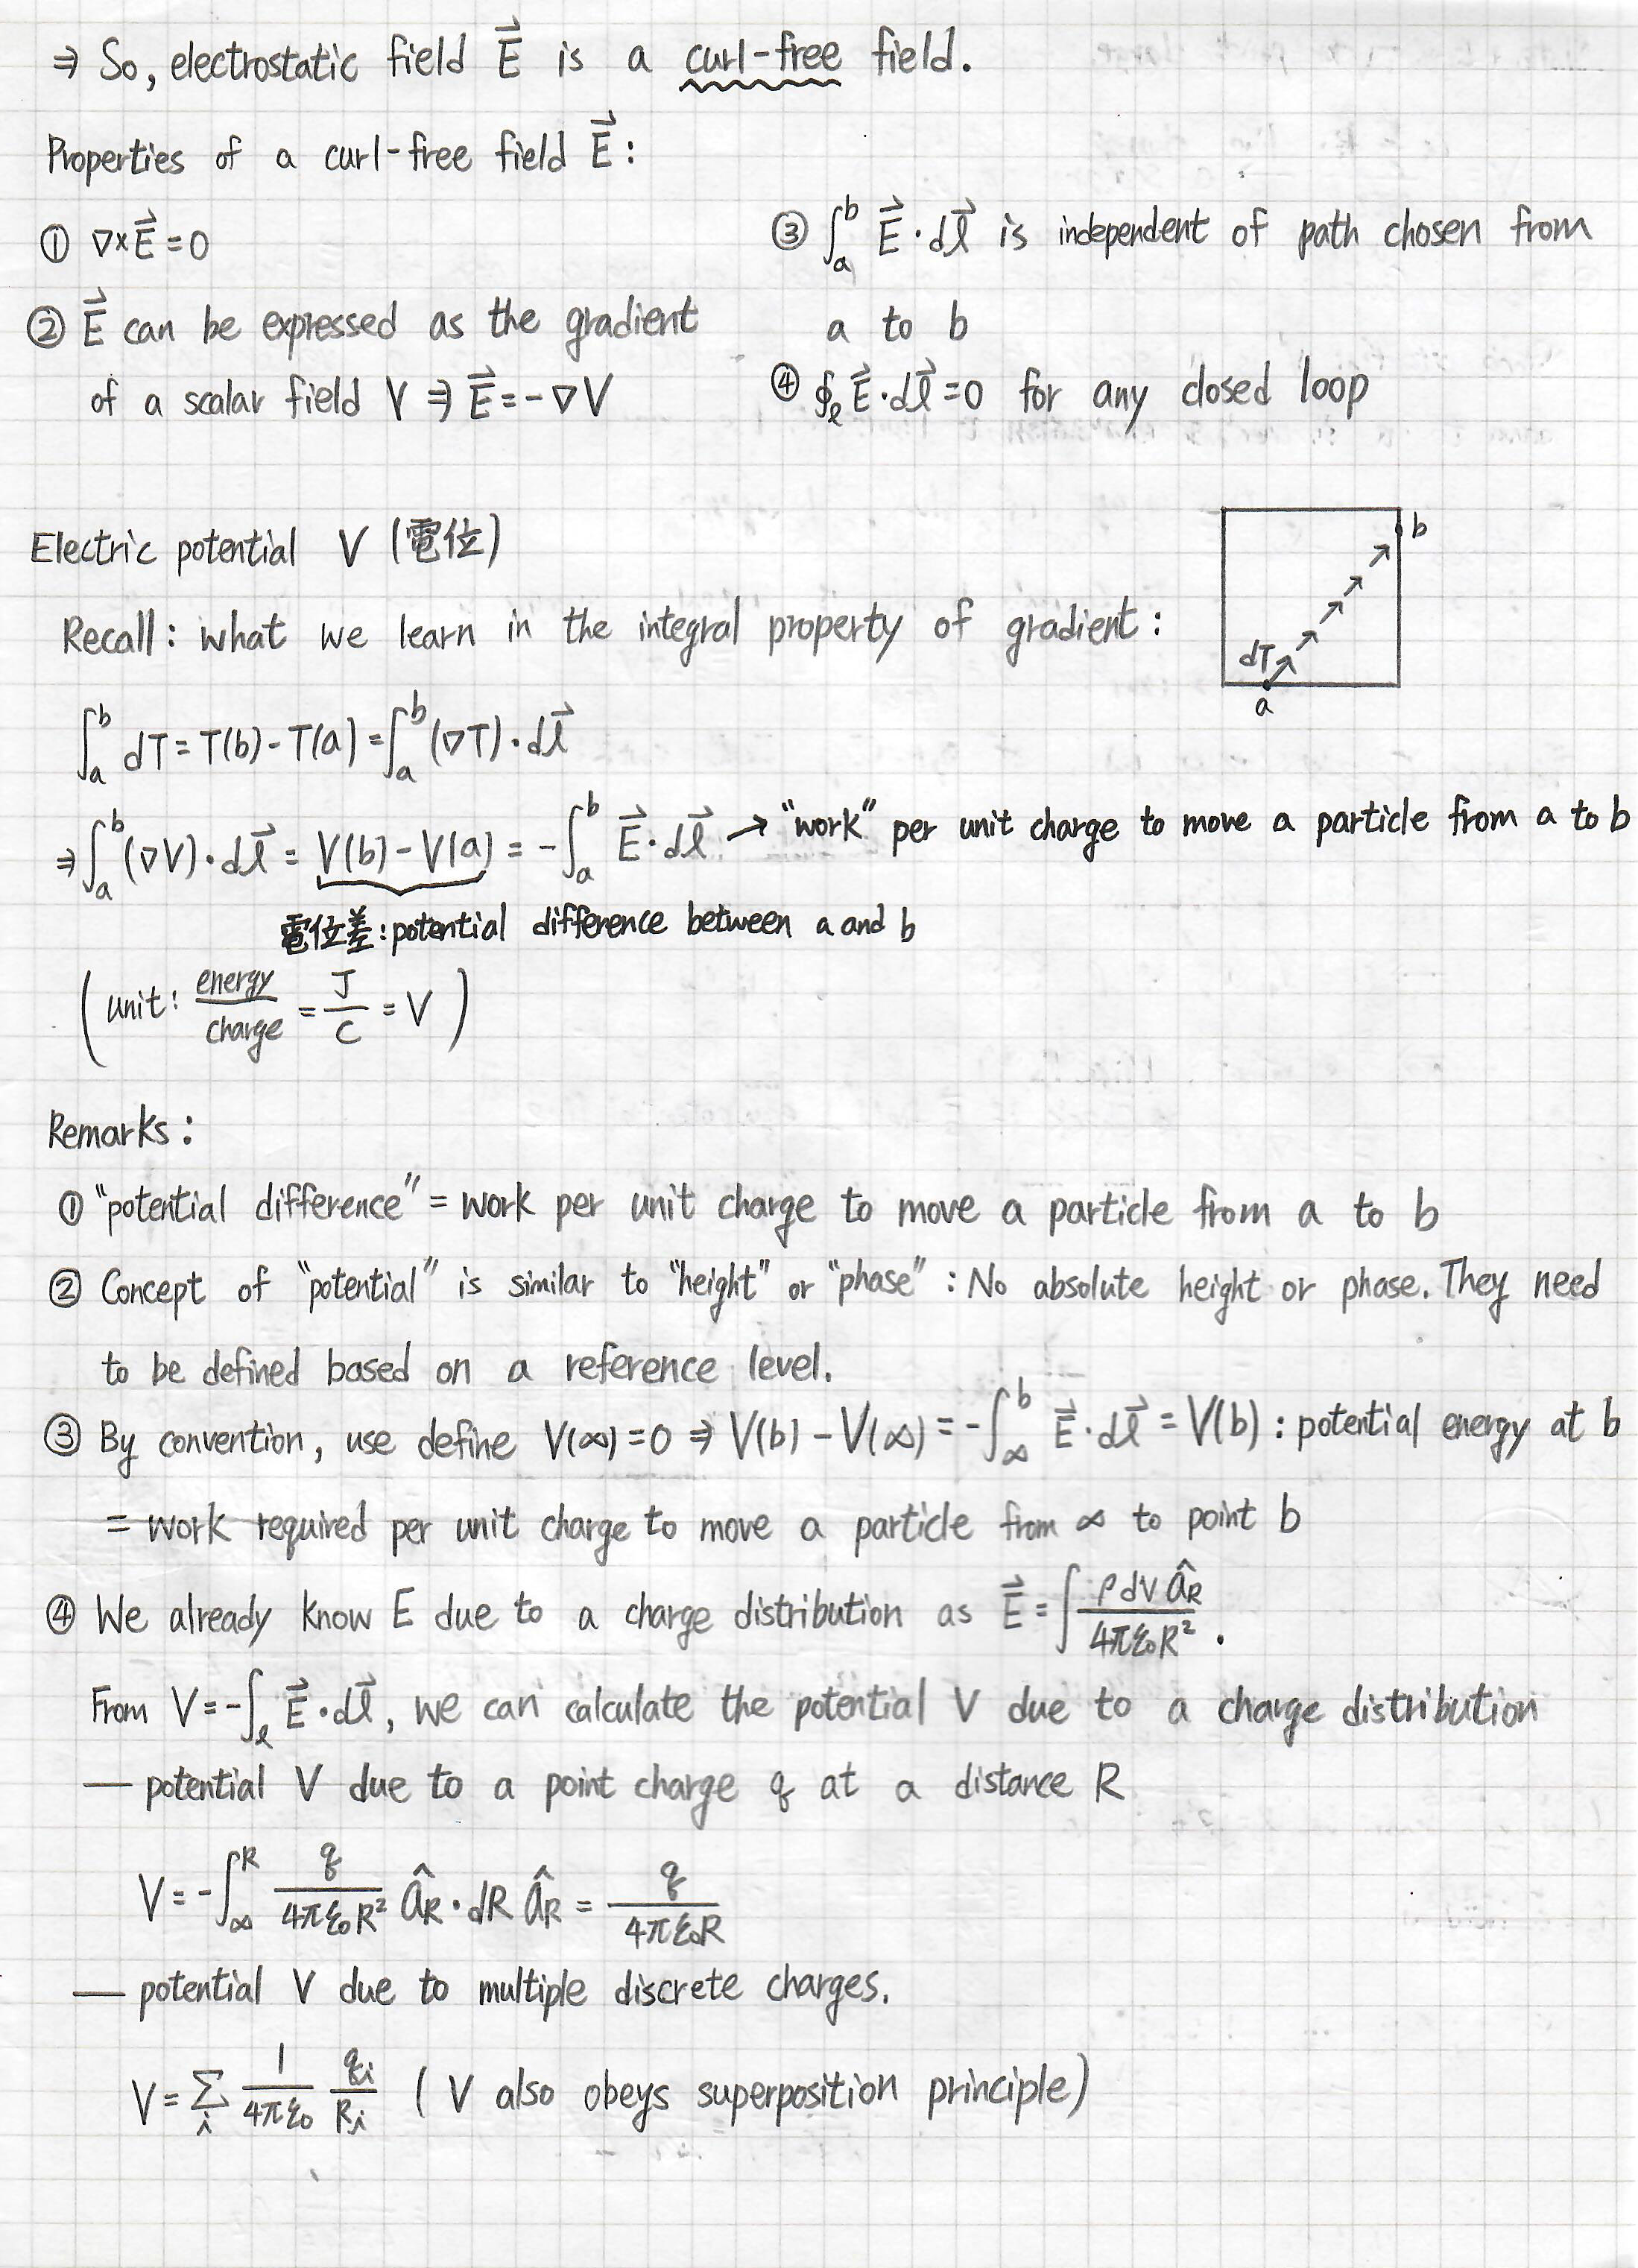 ⇒ So, electrostatic field E⃗ is a curl-free field.
Properties of a curl-free field E⃗ :
① ∇×E⃗ = 0
② E⃗ can be expressed as the gradient
of a scalar field V ⇒ E⃗ = -∇V
③ ∫ₐᵇ E⃗ · dl⃗ is independent of path chosen from
a to b
④ ∮ₗ E⃗ · dl⃗ = 0 for any closed loop
Electric potential V (電位)
Recall : what we learn in the integral property of gradient :
b
dT
a
∫ₐᵇ dT = T(b) - T(a) = ∫ₐᵇ (∇T) · dl⃗
⇒ ∫ₐᵇ (∇V) · dl⃗ = V(b) - V(a) = -∫ₐᵇ E⃗ · dl⃗ → "work" per unit charge to move a particle from a to b
電位差 : potential difference between a and b
( unit : energy/charge = J/C = V )
Remarks :
① "potential difference" = work per unit charge to move a particle from a to b
② Concept of "potential" is similar to "height" or "phase" : No absolute height or phase. They need
to be defined based on a reference level.
③ By convention, use define V(∞) = 0 ⇒ V(b) - V(∞) = -∫_∞^b E⃗ · dl⃗ = V(b) : potential energy at b
= work required per unit charge to move a particle from ∞ to point b
④ We already know E due to a charge distribution as E⃗ = ∫ ρ dv â_R / 4πε₀R² .
From V = -∫ₗ E⃗ · dl⃗, we can calculate the potential V due to a charge distribution
— potential V due to a point charge q at a distance R
V = -∫_∞^R q/4πε₀R² â_R · dR â_R = q/4πε₀R
— potential V due to multiple discrete charges.
V = Σ_i 1/4πε₀ q_i/R_i ( V also obeys superposition principle)